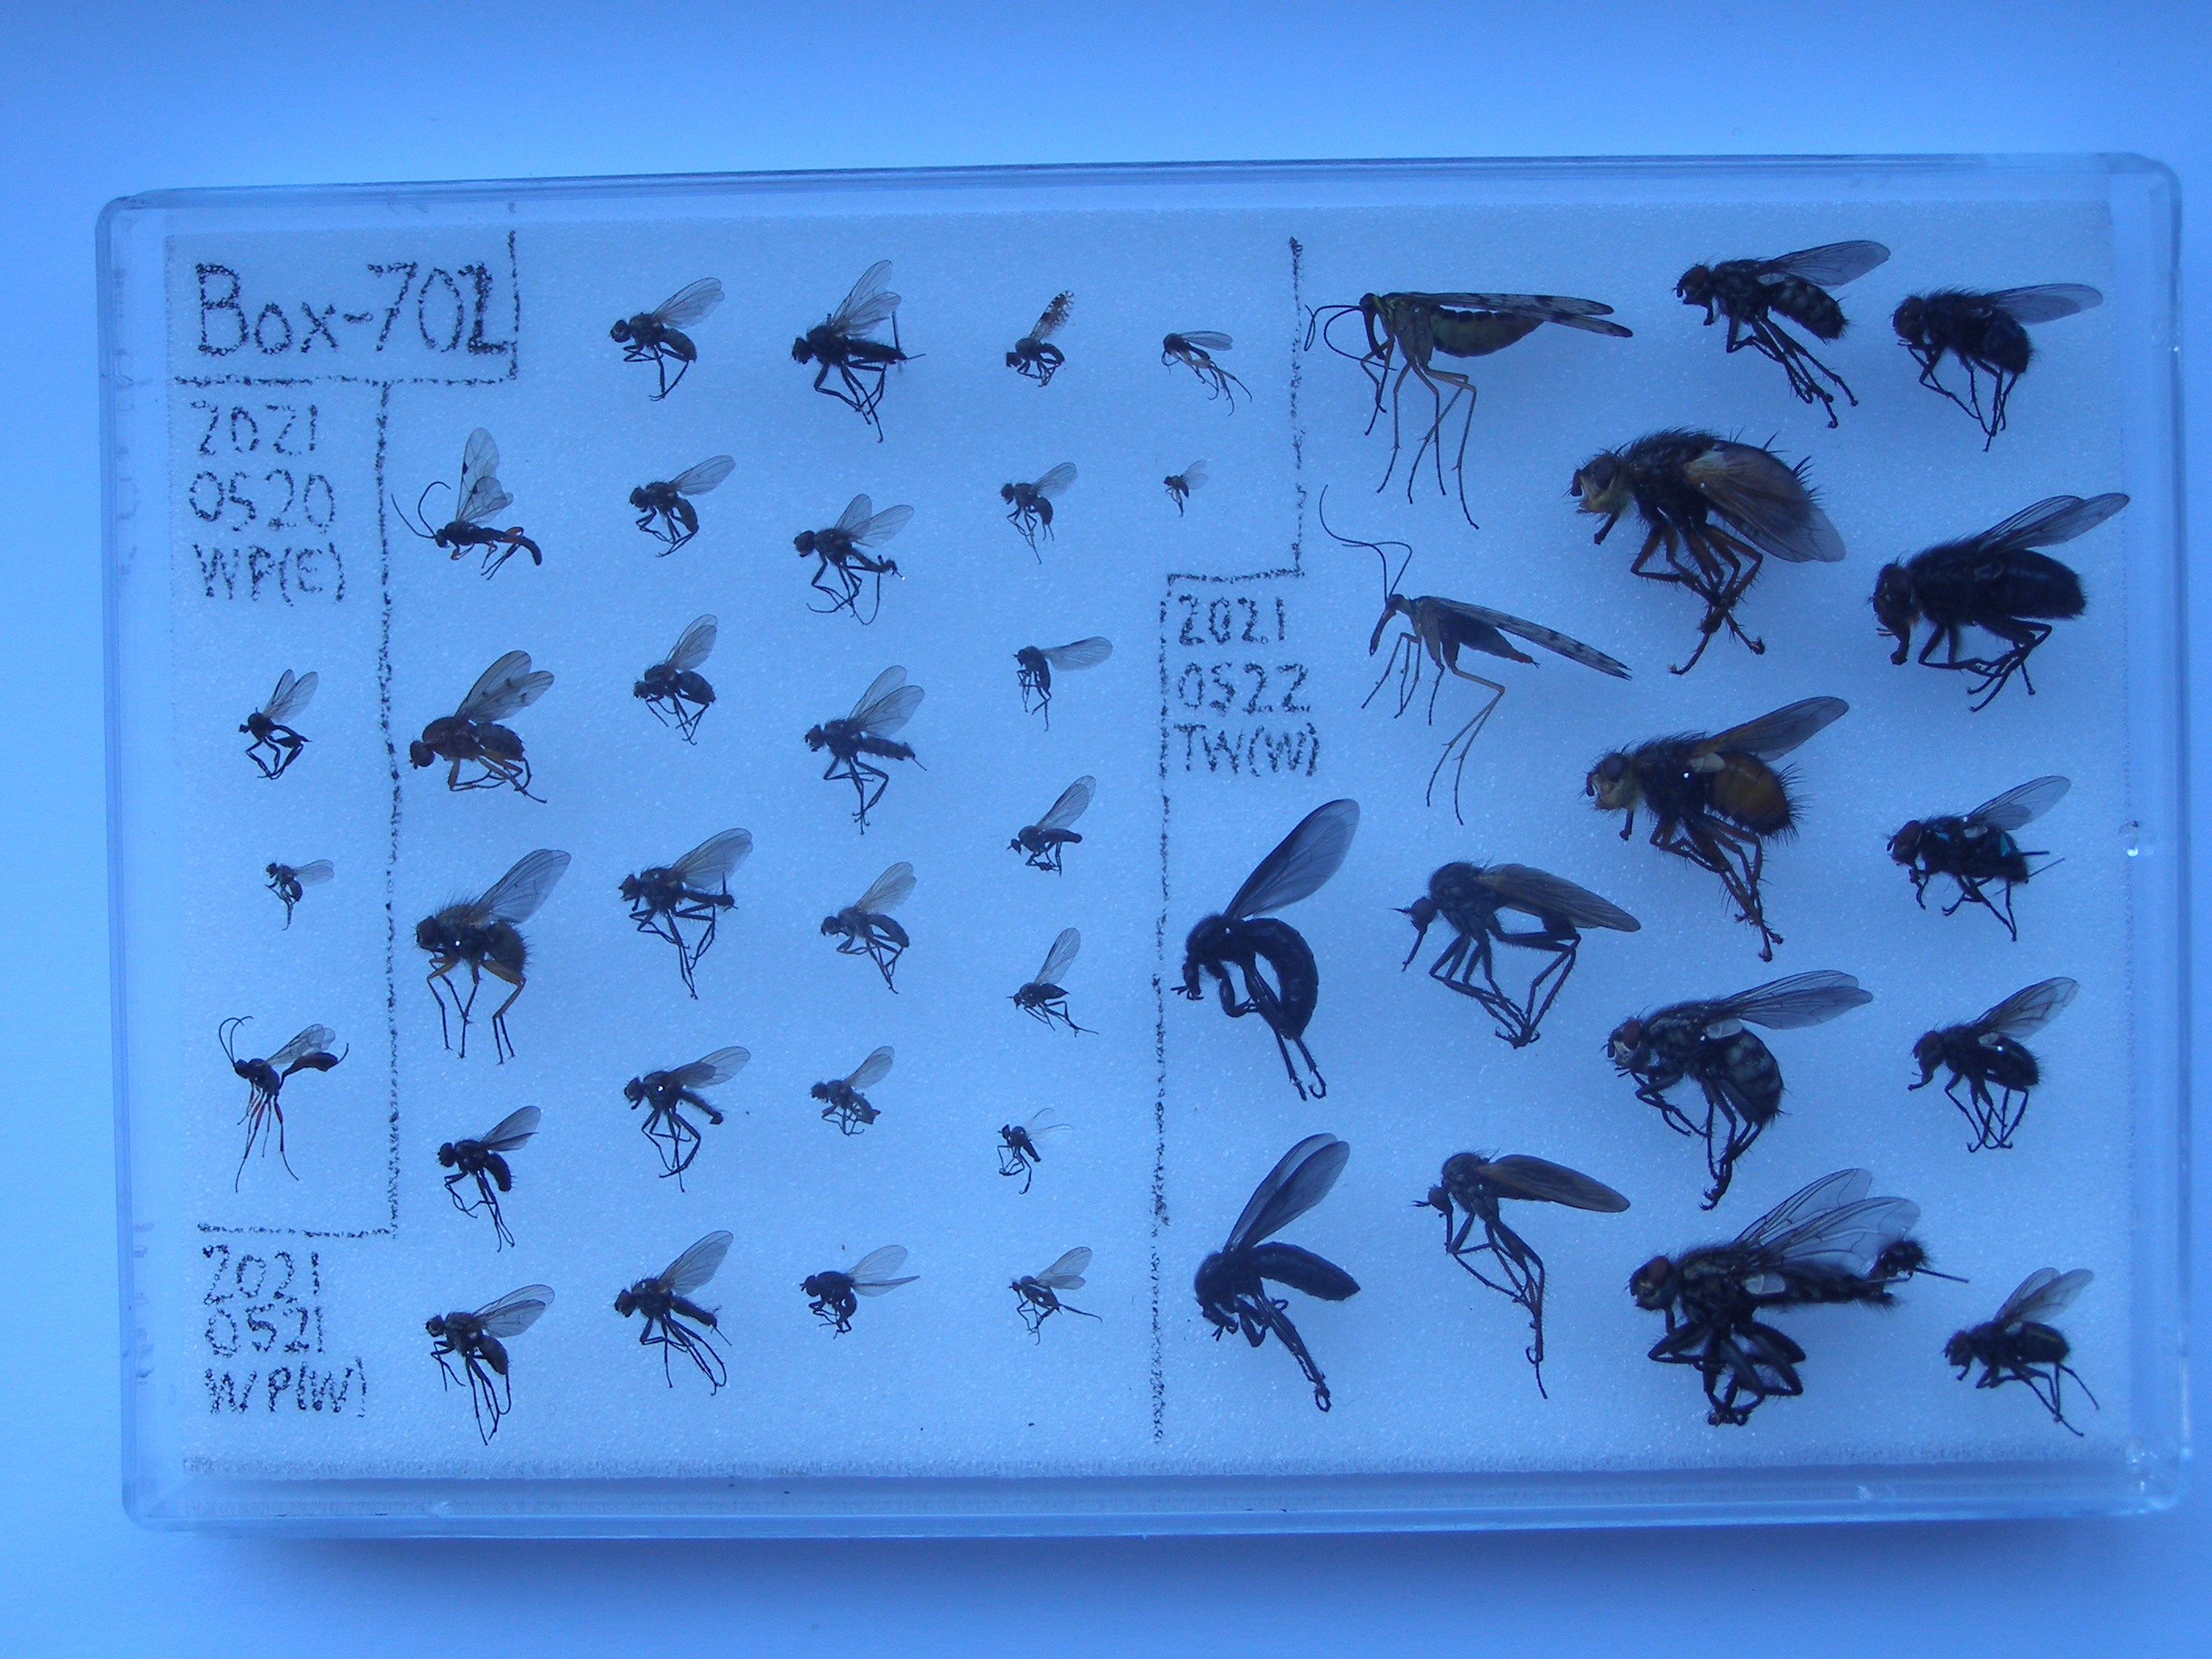 Box-702
2021
0520
WP(E)
2021
0521
WP(W)
2021
0522
TW(W)